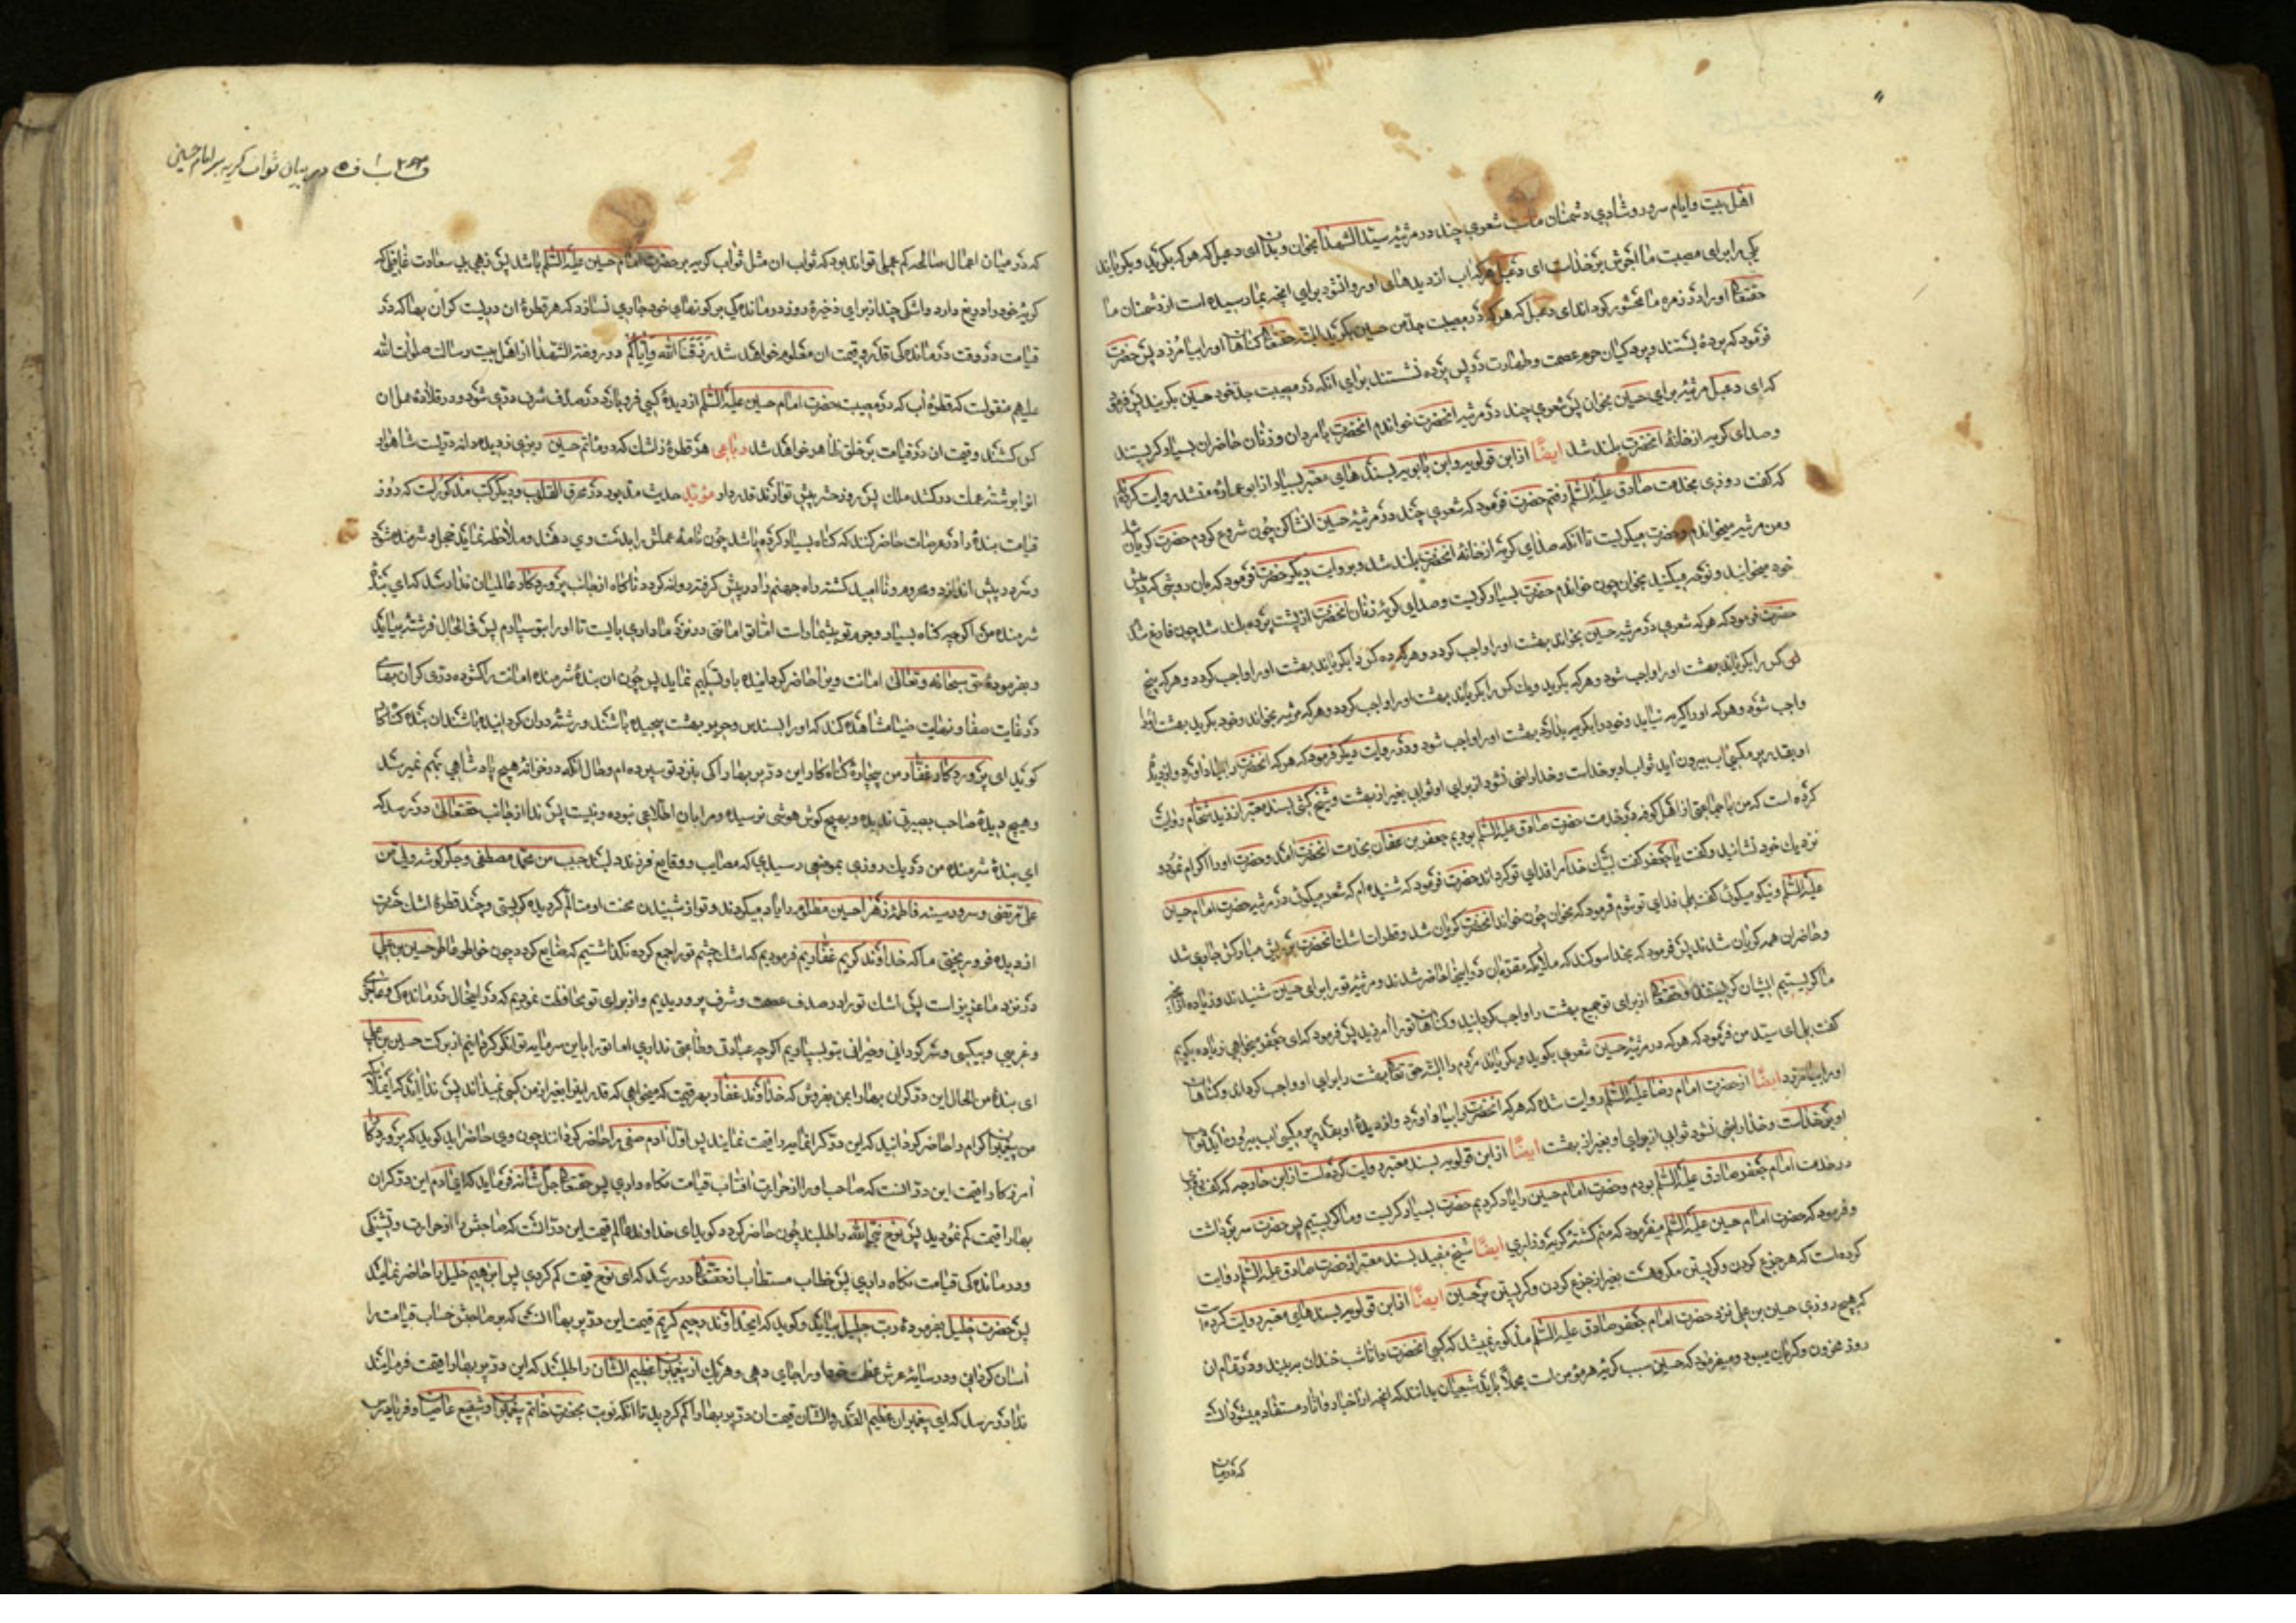 اهل بیت و ایام سرور و شادی دشمنان ماست شعری چند در مرثیه سید الشهدا بخوان و بدان ای دعبل که هر که بگرید و بگریاند
یکی را برای مصیبت ما اجرش بر خداست ای دعبل هر که اب از دیدهای او روان شود برای انچه بما رسیده است از دشمنان ما
حقتعالی او را در زمره ما محشور گرداند ای دعبل که هر که در مصیبت جدم حسین بگرید البته حقتعالی گناهان او را بیامرزد پس حضرت
فرمود که پرده بستند و پردگیان حرم عصمت و طهارت در پس پرده نشستند برای آنکه در مصیبت جد خود حسین بگریند پس فرمود
که ای دعبل مرثیه برای حسین بخوان پس شعری چند در مرثیه انحضرت خواندم انحضرت با مردان و زنان حاضران بسیار گریستند
و صدای گریه از خانه انحضرت بلند شد ایضًا از ابن قولویه و ابن بابویه بسندهای معتبر بسیار از ابو عماره منشد روایت کرده‌اند
که گفت روزی بخدمت صادق علیه السلم رفتم حضرت فرمود که شعری چند در مرثیه حسین انشا کن چون شروع کردم حضرت گریان شد
و من مرثیه میخواندم و حضرت میگریست تا آنکه صدای گریه از خانه انحضرت بلند شد و بروایت دیگر حضرت فرمود که بان روشی که پیش
خود میخوانید و نوحه میکنید بخوان چون خواندم حضرت بسیار گریست و صدای گریه زنان انحضرت از پشت پرده بلند شد چون فارغ شدم
حضرت فرمود که هر که شعری در مرثیه حسین بخواند بهشت او را واجب گردد و هر که ده کس را بگریاند بهشت او را واجب گردد و هر که پنج
کس را بگریاند بهشت او را واجب شود و هر که بگرید و یک کس را بگریاند بهشت او را واجب گردد و هر که مرثیه بخواند و خود بگرید بهشت او را
واجب شود و هر که او را گریه نیاید و خود را بگریه بدارد بهشت او را واجب شود و در روایت دیگر فرمود که هر که انحضرت را بیاد آورد و از دیده
او بقدر پر مگسی اب بیرون آید ثواب او بر خداست و خدا راضی نشود از برای او ثوابی بغیر از بهشت و شیخ کشی بسند معتبر از زید شحام روایت
کرده است که من با جماعتی از اهل کوفه در خدمت حضرت صادق علیه السلم بودیم جعفر بن عفان بخدمت انحضرت آمد و حضرت او را اکرام نمود و
نزدیک خود نشانید و گفت یا جعفر گفت لبیک خدا مرا فدای تو گرداند حضرت فرمود که شنیده ام که شعر میگوئی در مرثیه حضرت امام حسین
علیه السلم و نیکو میگوئی گفت بلی فدای تو شوم فرمود که بخوان چون خواند انحضرت گریان شد و قطرات اشک انحضرت بر ریش مبارکش جاری شد
و حاضران همه گریان شدند پس فرمود که بخدا سوگند که ملایکه مقربان در اینجا حاضر شدند و مرثیه تو را برای حسین شنیدند و زیاده از انچه
ما گریستیم ایشان گریستند و حقتعالی از برای تو جمیع بهشت را واجب گردانید و گناهان تو را آمرزید پس فرمود که ای جعفر میخواهی زیاده بگویم
گفت بلی ای سید من فرمود که هر که در مرثیه حسین شعری بگوید و بگریاند مردم را البته حق تعالی بهشت را برای او واجب گرداند و گناهان
او را بیامرزد ایضًا از حضرت امام رضا علیه السلم روایت شده که هر که انحضرت را بیاد آورد و از دیده او بقدر پر مگسی اب بیرون اید ثواب
او بر خداست و خدا راضی نشود ثوابی از برای او بغیر از بهشت ایضًا از ابن قولویه بسند معتبر روایت کرده است از ابن خارجه که گفت روزی
در خدمت امام جعفر صادق علیه السلم بودم و حضرت امام حسین را یاد کردیم حضرت بسیار گریست و ما گریستیم پس حضرت سر برداشت
و فرمود که حضرت امام حسین علیه السلم میفرمود که منم کشته گریه و زاری ایضًا شیخ مفید بسند معتبر از حضرت صادق علیه السلم روایت
کرده است که هر جزع کردن و گریستن مکروهست بغیر از جزع کردن و گریستن بر حسین ایضًا از ابن قولویه بسندهای معتبر روایت کرده است
که هیچ روزی حسین بن علی نزد حضرت امام جعفر صادق علیه السلم مذکور نمیشد که کسی انحضرت را تا شب خندان به بیند و در تمام ان
روز محزون و گریان میبود و میفرمود که حسین سبب گریه هر مؤمن است مجملا باید شیعیان بدانند که انچه از اخبار و اثار مستفاد میشود انست
که در میان
در بیان ثواب گریه بر امام حسین
که در میان اعمال صالحه کم عملی تواند بود که ثواب ان مثل ثواب گریه بر حضرت امام حسین علیه السلم باشد پس زهی بی سعادت غافلی که
گریه خود را دریغ دارد و اشکی چند از برای ذخیره روز درماندگی بر گونهای خود جاری نسازد که هر قطره ان دریست گران بها که در
قیامت در وقت درماندگی قدر و قیمت ان معلوم خواهد شد رزقنا الله وایاکم در روضة الشهدا از اهل بیت رسالت صلوات الله
علیهم منقولست که قطره اب که در مصیبت حضرت امام حسین علیه السلم از دیده کسی فرو بارد در صدف شرف دری شود و در قلاده عمل ان
کس کشند و قیمت ان در قیامت بر خلق ظاهر خواهد شد رباعی هر قطره ز اشک که در ماتم حسین ریزی ز دیده دانه دریست شاهوار
انرا برشته عملت در کشد ملک پس روز حشر پیش تو آرند قدر دار مؤید حدیث مذبور در محرق القلوب و دیگر کتب مذکورست که روز
قیامت بنده را در عرصات حاضر کنند که گناه بسیار کرده باشد چون نامه عملش را بدست وی دهند و ملاحظه نماید خجل و شرمنده شود
و سر در پیش اندازد و محروم و ناامید گشته راه جهنم را در پیش گرفته روانه گردد ناگاه از جانب پروردگار عالمیان ندا رسد که ای بنده
شرمنده من اگرچه گناه بسیار و جرم تو بیشمار است اما تو امانتی در نزد ما داری بایست تا او را بتو سپارم پس فی الحال فرشته بیاید
و بفرموده حق سبحانه و تعالی امانت ویرا حاضر گردانیده باو تسلیم نماید پس چون ان بنده شرمنده امانت را گشوده دری گران بهای
در غایت صفا و نهایت ضیا مشاهده کند که او را بسندس و حریر بهشت پیچیده باشند
گوید ای پروردگار غفار من بیچاره گناه کار این در پر بها را کی بنزد تو سپرده ام و حال آنکه در خزانه هیچ پادشاهی بهم نمیرسد
و هیچ دیده صاحب بصیرتی ندیده و بهیچ گوش هوشی نرسیده و مرا بان اطلاعی نبوده و نیست پس ندا از جانب حقتعالی در رسد که
ای بنده شرمنده من در یک روزی بموضعی رسیدی که مصایب و وقایع فرزند دلبند حبیب من محمد مصطفی و جگر گوشه ولی من
علی مرتضی و سرور سینه فاطمه زهرا حسین مظلوم را یاد میکردند و تو از شنیدن محنت او متالم گردیده گریستی و چند قطره اشک حسرت
از دیده فرو ریختی ما که خداوند کریم غفاریم فرمودیم که اشک چشم تو را جمع کرده نگذاشتیم که ضایع گردد چون خواطر فاطر حسین بن علی
در نزد ما عزیز است پس اشک تو را در صدف عصمت و شرف پروریدیم و از برای تو محافظت نمودیم که در اینحال درماندگی و عاجزی
و غریبی و بیکسی و سرگردانی و حیرانی بتو بسپاریم اگرچه عبادتی و طاعتی نداری اما تو را باین سرمایه توانگر گردانیم از برکت حسین بن علی
ای بنده من الحال این در گران بها را بمن بفروش که خداوند غفارم بهر قیمت که میخواهی که قدر اینرا بغیر از من کسی نمیداند پس ندا آید که ای ملایکه
من پیغمبران کرام را حاضر گردانید که این در گرانمایه را قیمت نمایند پس اول آدم صفی را حاضر گردانند چون وی حاضر آید گوید که پروردگارا
آمرزگارا قیمت این در انست که صاحب او را از حرارت افتاب قیامت نگاه داری پس حقتعالی جل شانه فرماید که ای آدم این در گران
بها را قیمت کم نمودید پس نوح نجی الله را طلبند چون حاضر گردد گوید ای خداوند عالم قیمت این در انست که صاحبش را از حرارت و تشنگی
و درماندگی قیامت نگاه داری پس خطاب مستطاب از حقتعالی در رسد که ای نوح قیمت کم کردی پس ابرهیم خلیل را حاضر نمایند
پس حضرت خلیل بفرموده رب جلیل بیاید و گوید که ایخداوند رحیم کریم قیمت این در پر بها انست که بر صاحبش حساب قیامت را
اسان گردانی و در سایه عرش عظمت خود او را جای دهی و هر یک از پیغمبران عظیم الشان را طلبند که این در پر بها را قیمت فرمایند
ندا در رسد که ای پیغمبران عظیم القدر والشان قیمت ان در پر بها را کم کردید تا آنکه نوبت بحضرت خاتم پیغمبران و شفیع عاصیان و فریادرس